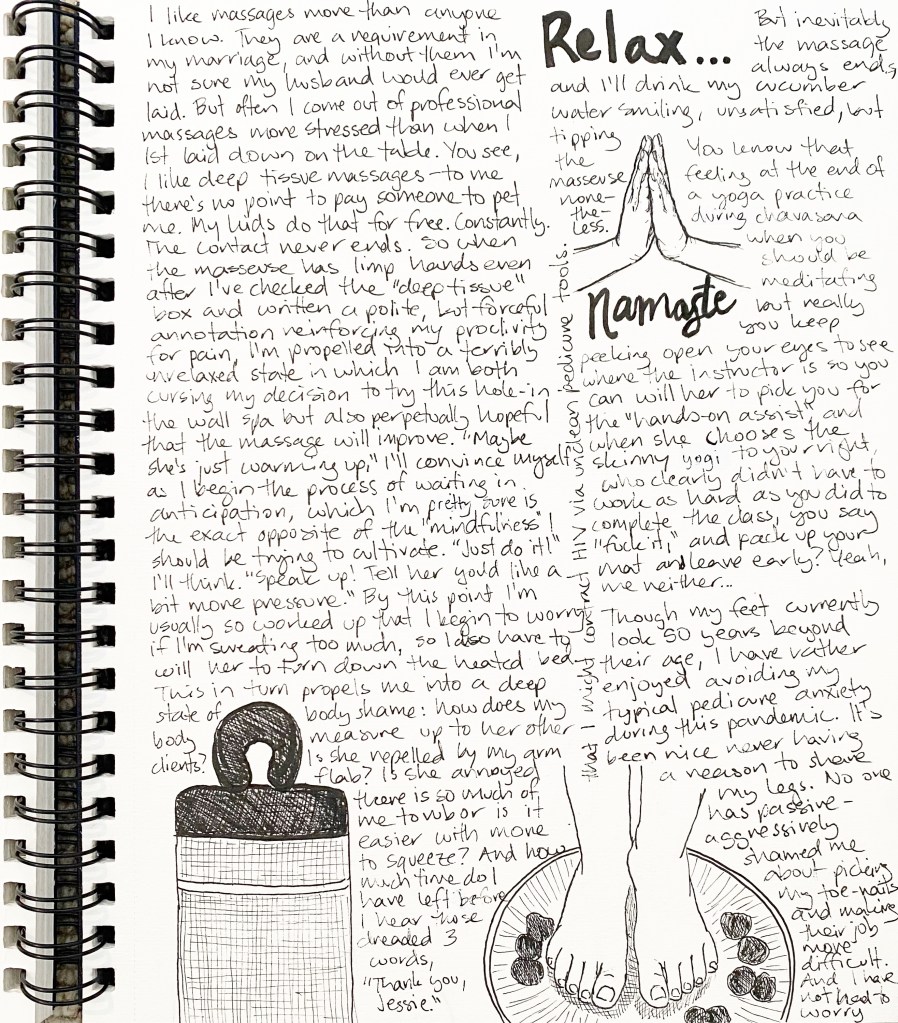 I like massages more than anyone
I know. They are a requirement in
my marriage, and without them I'm
not sure my husband would ever get
laid. But often I come out of professional
massages more stressed than when I
1st laid down on the table. You see,
I like deep tissue massages - to me
there's no point to pay someone to pet
me. My kids do that for free. Constantly.
The contact never ends. So when
the masseuse has limp hands even
after I've checked the "deep tissue"
box and written a polite, but forceful
annotation reinforcing my proclivity
for pain, I'm propelled into a terribly
unrelaxed state in which I am both
cursing my decision to try this hole-in
the wall spa but also perpetually hopeful
that the massage will improve. "Maybe
she's just warming up," I'll convince myself
as I begin the process of waiting in
anticipation, which I'm pretty sure is
the exact opposite of the "mindfulness" I
should be trying to cultivate. "Just do it!"
I'll think. "Speak up! Tell her you'd like a
bit more pressure." By this point I'm
usually so worked up that I begin to worry
if I'm sweating too much, so I also have to
will her to turn down the heated bed.
This in turn propels me into a deep
state of body shame: how does my
body measure up to her other
clients? Is she repelled by my arm
flab? Is she annoyed
there is so much of
me to rub or is it
easier with more
to squeeze? And how
much time do I
have left before
I hear those
dreaded 3
words,
"Thank you,
Jessie."
Relax...
But inevitably
the massage
always ends,
and I'll drink my cucumber
water smiling, unsatisfied, but
tipping
the
masseuse
none-
the-
less.
Namaste
You know that
feeling at the end of
a yoga practice
during chavasana
when you
should be
meditating
but really
you keep
peeking open your eyes to see
where the instructor is so you
can will her to pick you for
the "hands-on assist," and
when she chooses the
skinny yogi to your right,
who clearly didn't have to
work as hard as you did to
complete the class, you say
"fuck it," and pack up your
mat and leave early? Yeah,
me neither...
Though my feet currently
look 50 years beyond
their age, I have rather
enjoyed avoiding my
typical pedicure anxiety
during this pandemic. It's
been nice never having
a reason to shave
my legs. No one
has passive-
aggressively
shamed me
about picking
my toe-nails
and making
their job
more
difficult.
And I have
not had to
worry
that I might contract HIV via unclean pedicure tools.